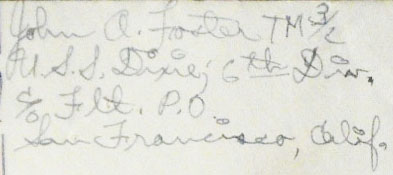 John A. Foster TM 3/c
U.S.S. Dixie, 6th Div.
c/o Flt. P.O.
San Francisco, Calif.